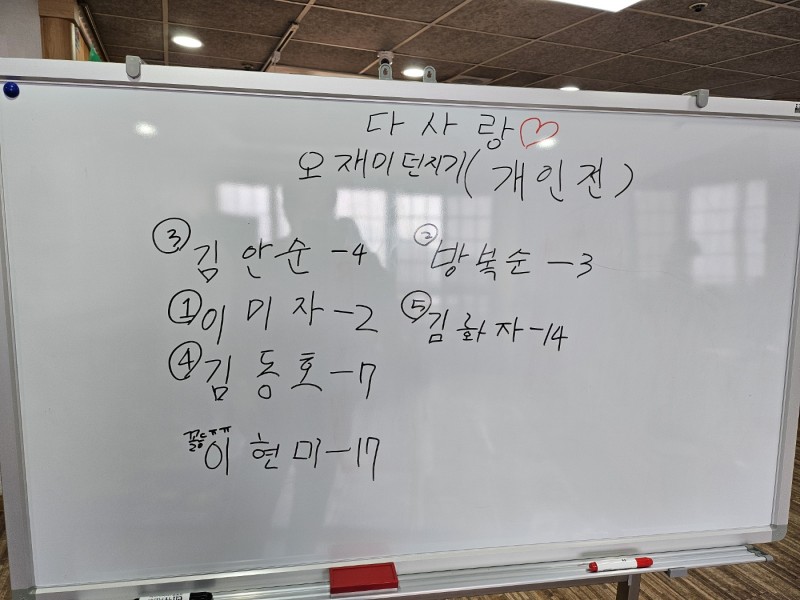 다사랑♡
오재미던지기(개인전)
③김안순-4
②방복순-3
①이미자-2
⑤김화자-14
④김동호-7
꼴등ㅠㅠ이현미-17